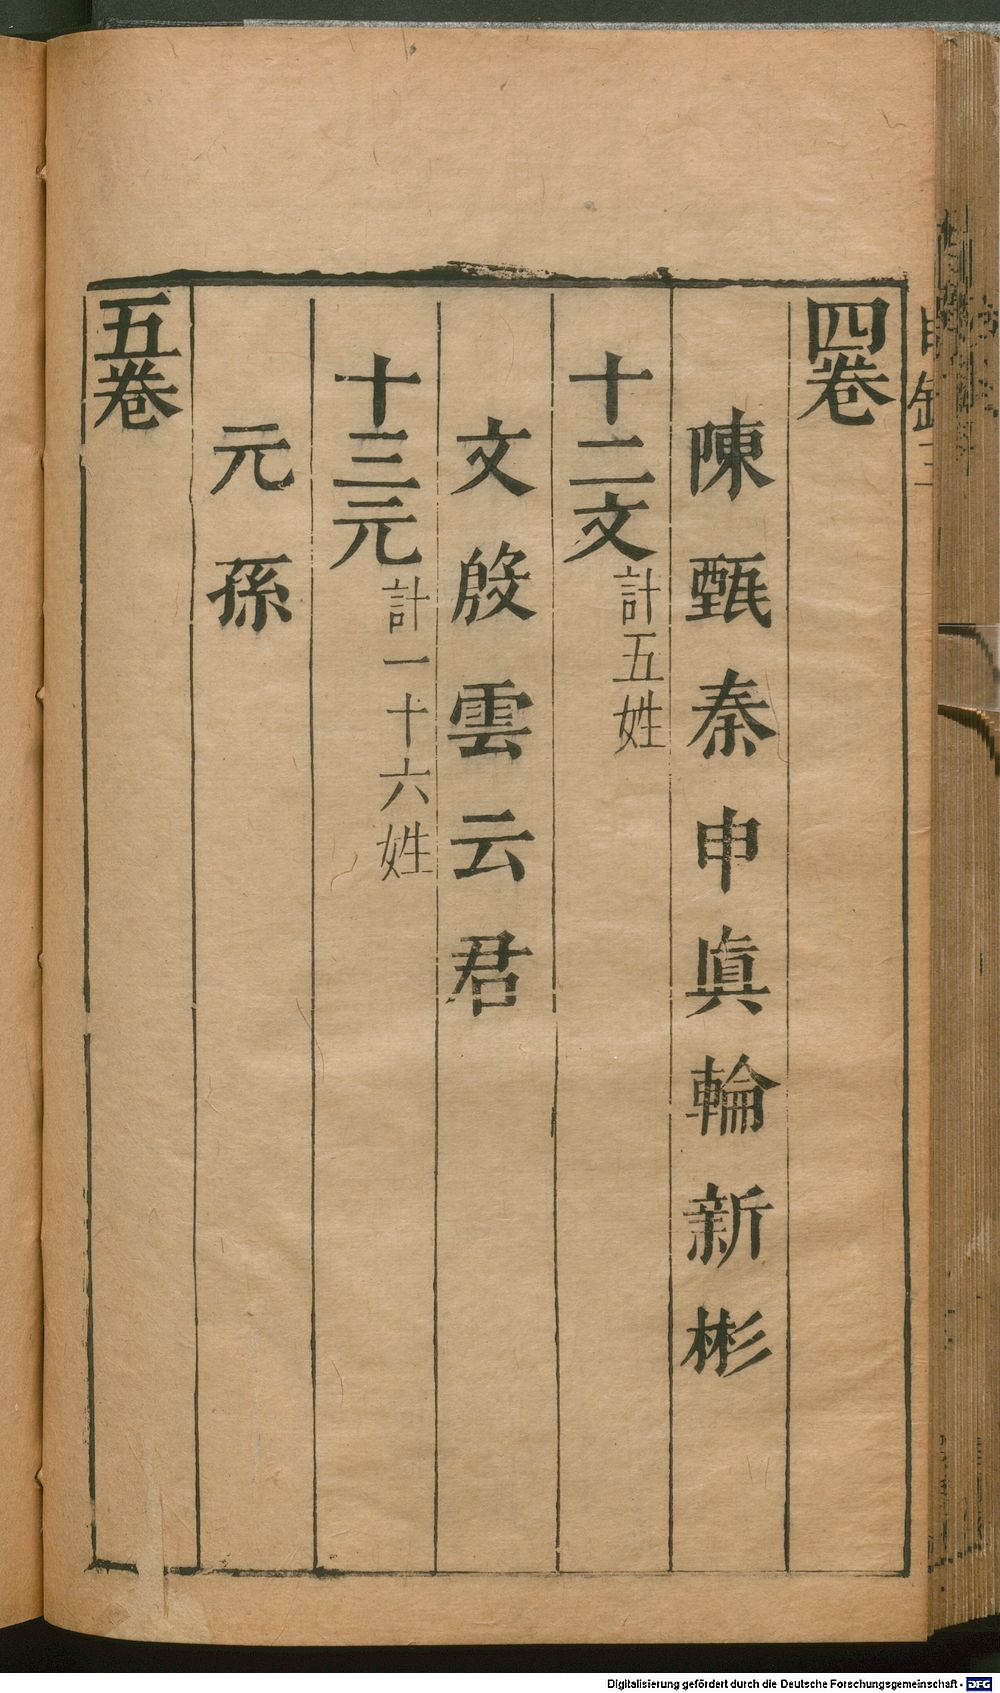 四卷
陳甄秦申真輪新彬
十二文計五姓
文殷雲云君
十三元計一十六姓
元孫
五卷
Digitalisierung gefördert durch die Deutsche Forschungsgemeinschaft - DFG